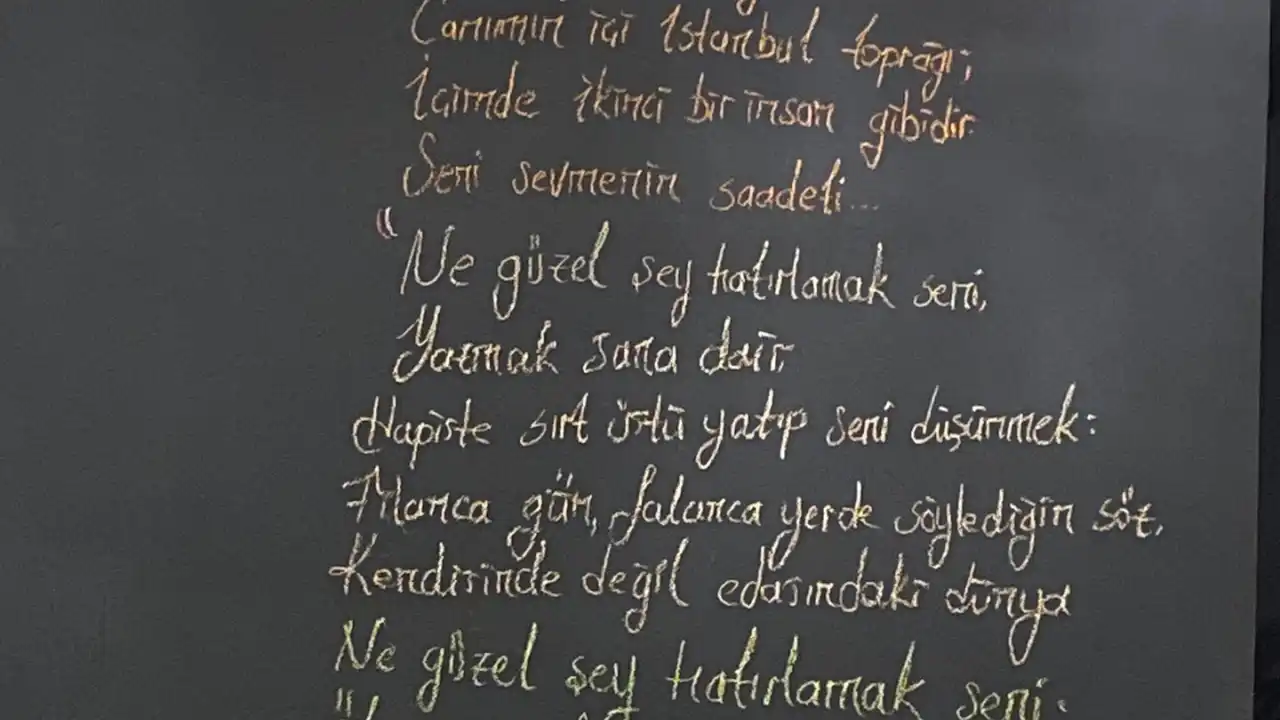 Canımın içi İstanbul toprağı;
İçimde ikinci bir insan gibidir
Seni sevmenin saadeti...
"Ne güzel şey hatırlamak seni,
Yazmak sana dair,
Hapiste sırt üstü yatıp seni düşünmek:
Filanca gün, falanca yerde söylediğin söz,
Kendisinde değil edasındaki dünya
Ne güzel şey hatırlamak seni.